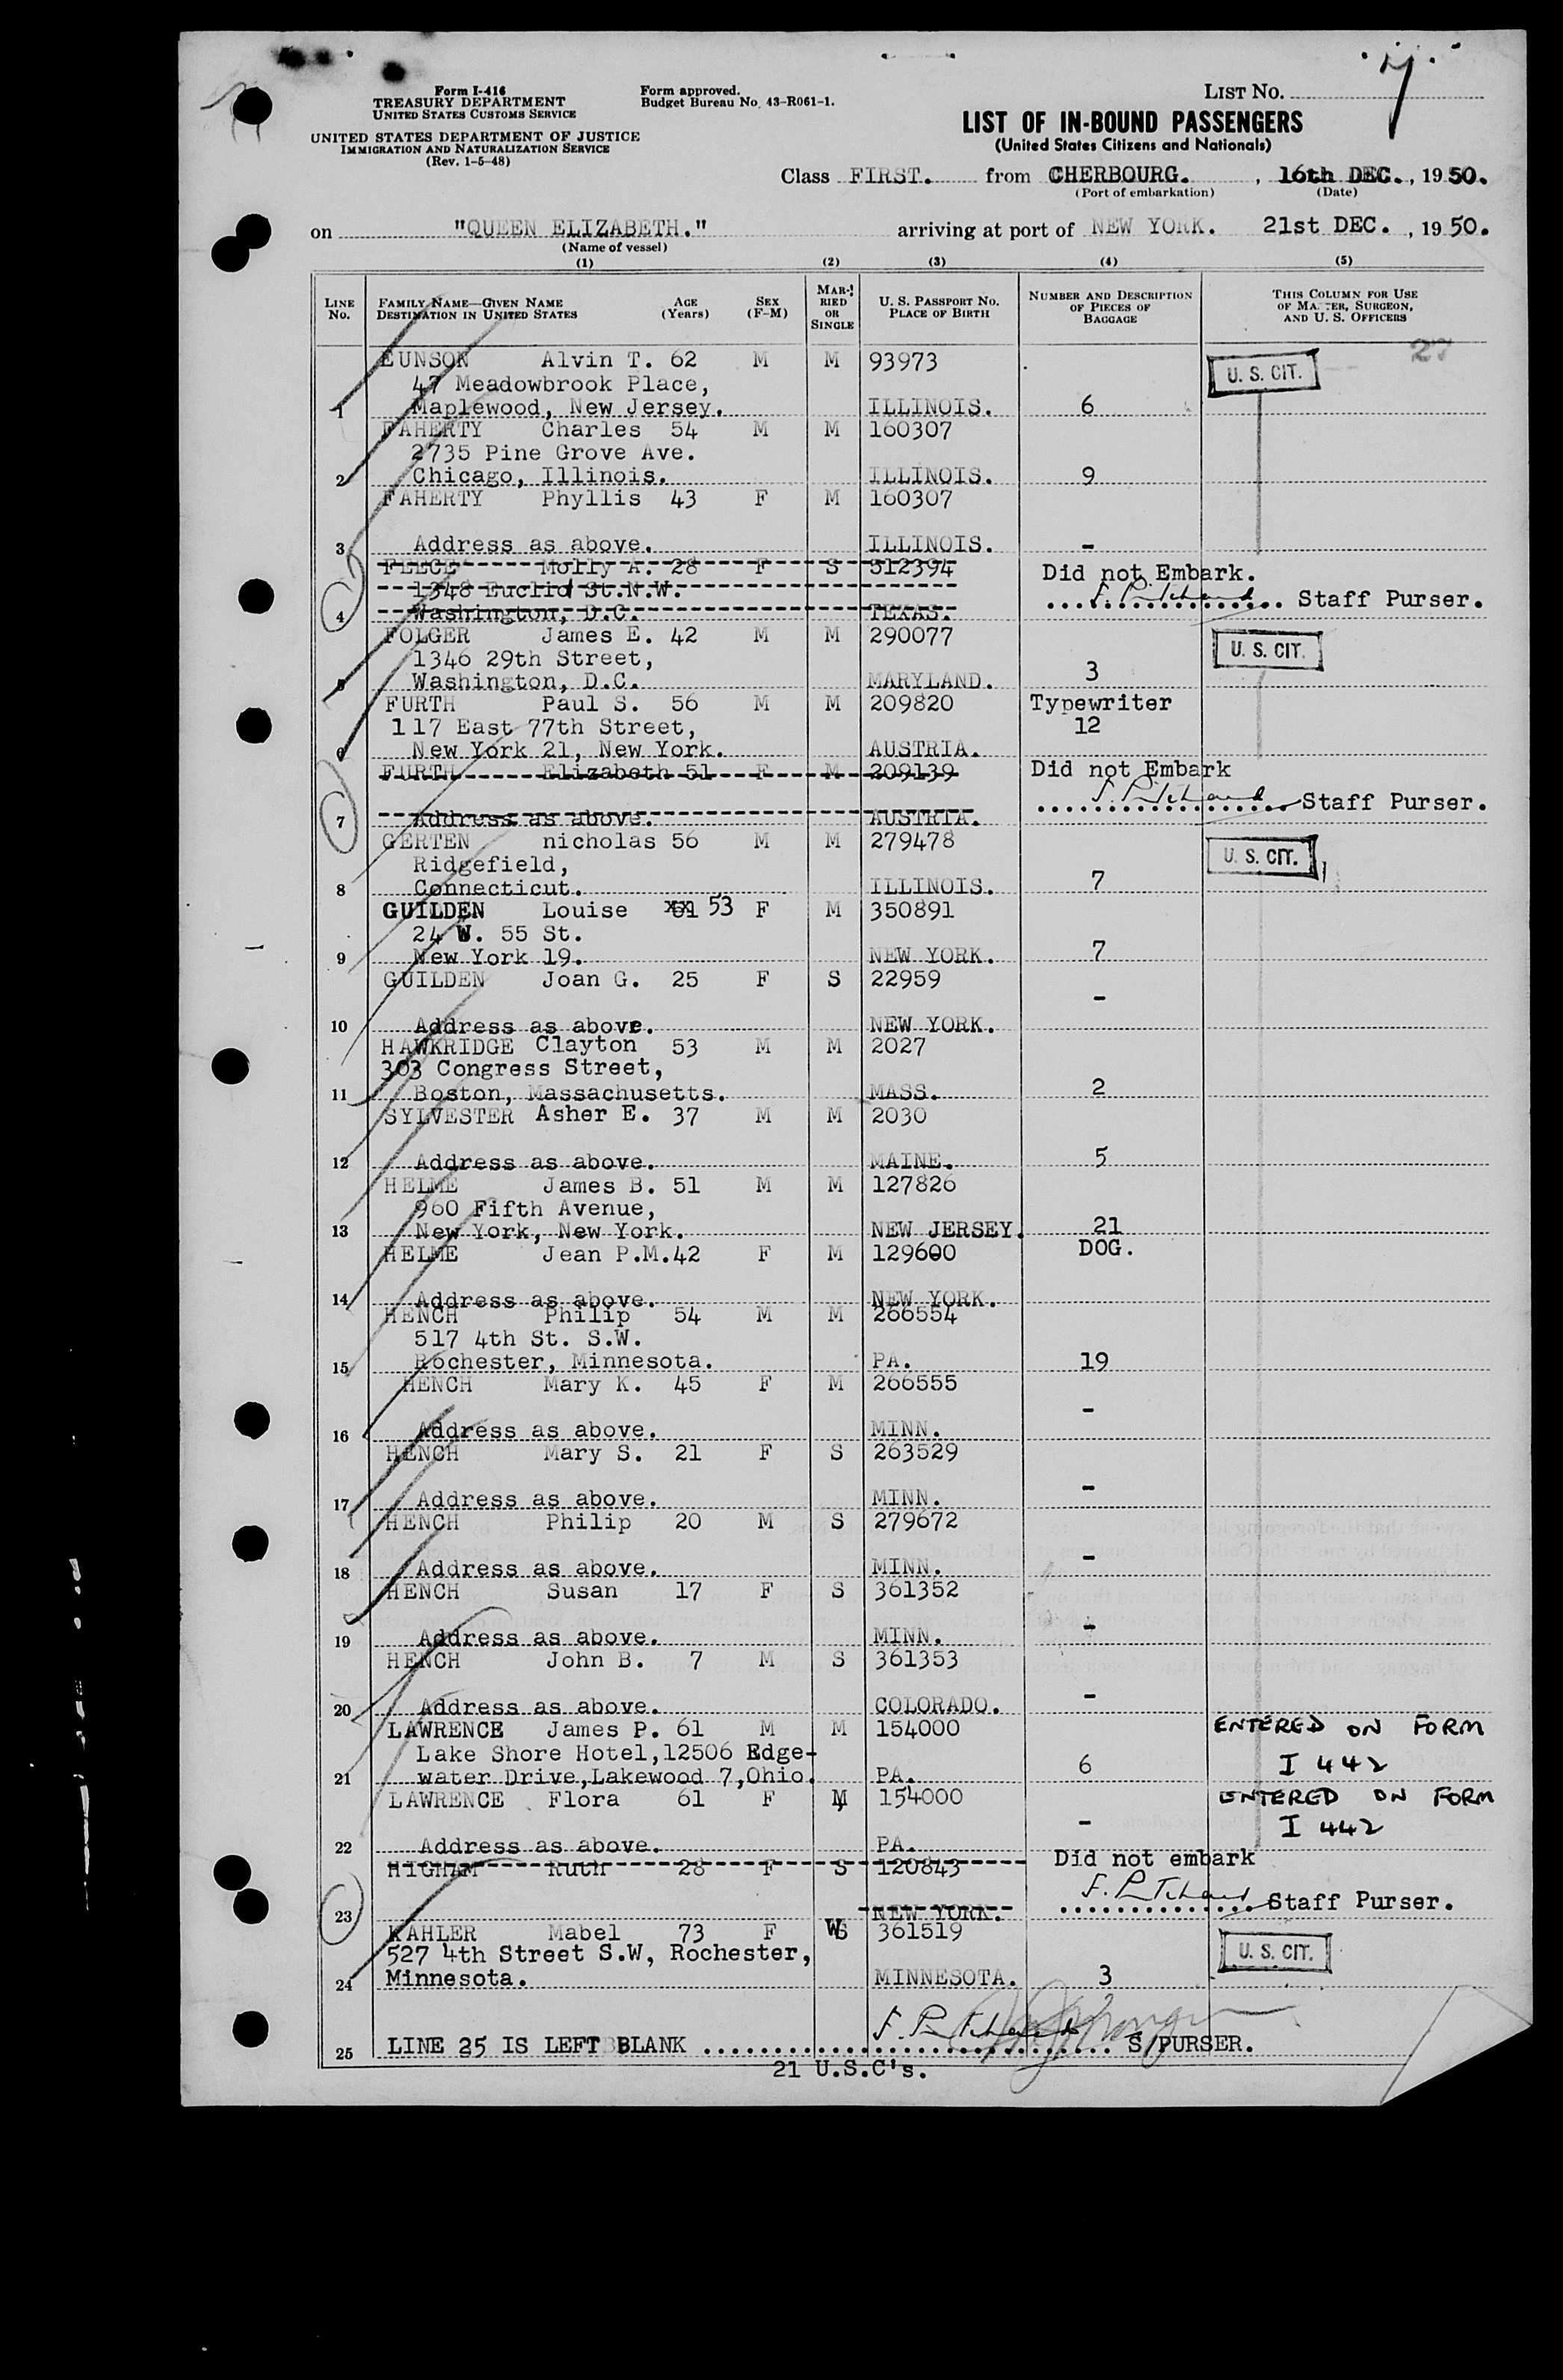 Form I-416
TREASURY DEPARTMENT
UNITED STATES CUSTOMS SERVICE
UNITED STATES DEPARTMENT OF JUSTICE
IMMIGRATION AND NATURALIZATION SERVICE
(Rev. 1-5-48)
Form approved.
Budget Bureau No. 43-R061-1.
LIST NO.
LIST OF IN-BOUND PASSENGERS
(United States Citizens and Nationals)
Class FIRST. from CHERBOURG. , 16th DEC., 1950.
(Port of embarkation) (Date)
on "QUEEN ELIZABETH." arriving at port of NEW YORK. 21st DEC. , 1950.
(Name of vessel)
(1) (2) (3) (4) (5)
LINE No. FAMILY NAME—GIVEN NAME DESTINATION IN UNITED STATES AGE (Years) SEX (F-M) MARRIED OR SINGLE U. S. PASSPORT NO. PLACE OF BIRTH NUMBER AND DESCRIPTION OF PIECES OF BAGGAGE THIS COLUMN FOR USE OF MASTER, SURGEON, AND U. S. OFFICERS
27
EUNSON Alvin T. 62 M M 93973 U. S. CIT.
47 Meadowbrook Place,
1 Maplewood, New Jersey. ILLINOIS. 6
FAHERTY Charles 54 M M 160307
2735 Pine Grove Ave.
2 Chicago, Illinois. ILLINOIS. 9
FAHERTY Phyllis 43 F M 160307
3 Address as above. ILLINOIS. -
FLECE Molly A. 28 F S 512394 Did not Embark.
1348 Euclid St.N.W. Staff Purser.
4 Washington, D.C. TEXAS.
FOLGER James E. 42 M M 290077 U. S. CIT.
1346 29th Street,
5 Washington, D.C. MARYLAND. 3
FURTH Paul S. 56 M M 209820 Typewriter
117 East 77th Street, 12
6 New York 21, New York. AUSTRIA.
FURTH Elizabeth 51 F M 209139 Did not Embark
Staff Purser.
7 Address as above. AUSTRIA.
GERTEN nicholas 56 M M 279478 U. S. CIT.
Ridgefield,
8 Connecticut. ILLINOIS. 7
GUILDEN Louise 53 F M 350891
24 W. 55 St.
9 New York 19. NEW YORK. 7
GUILDEN Joan G. 25 F S 22959
-
10 Address as above. NEW YORK.
HAWKRIDGE Clayton 53 M M 2027
303 Congress Street,
11 Boston, Massachusetts. MASS. 2
SYLVESTER Asher E. 37 M M 2030
12 Address as above. MAINE. 5
HELME James B. 51 M M 127826
960 Fifth Avenue,
13 New York, New York. NEW JERSEY. 21
HELME Jean P.M. 42 F M 129600 DOG.
14 Address as above. NEW YORK.
HENCH Philip 54 M M 266554
517 4th St. S.W.
15 Rochester, Minnesota. PA. 19
HENCH Mary K. 45 F M 266555
-
16 Address as above. MINN.
HENCH Mary S. 21 F S 263529
-
17 Address as above. MINN.
HENCH Philip 20 M S 279672
-
18 Address as above. MINN.
HENCH Susan 17 F S 361352
-
19 Address as above. MINN.
HENCH John B. 7 M S 361353
-
20 Address as above. COLORADO.
LAWRENCE James P. 61 M M 154000 ENTERED ON FORM
Lake Shore Hotel,12506 Edge- I 442
21 water Drive,Lakewood 7,Ohio. PA. 6
LAWRENCE Flora 61 F M 154000 ENTERED ON FORM
- I 442
22 Address as above. PA.
HIGHAM Ruth 28 F S 120843 Did not embark
Staff Purser.
23 NEW YORK.
KAHLER Mabel 73 F W 361519
527 4th Street S.W, Rochester, U. S. CIT.
24 Minnesota. MINNESOTA. 3
25 LINE 25 IS LEFT BLANK S/PURSER.
21 U.S.C's.